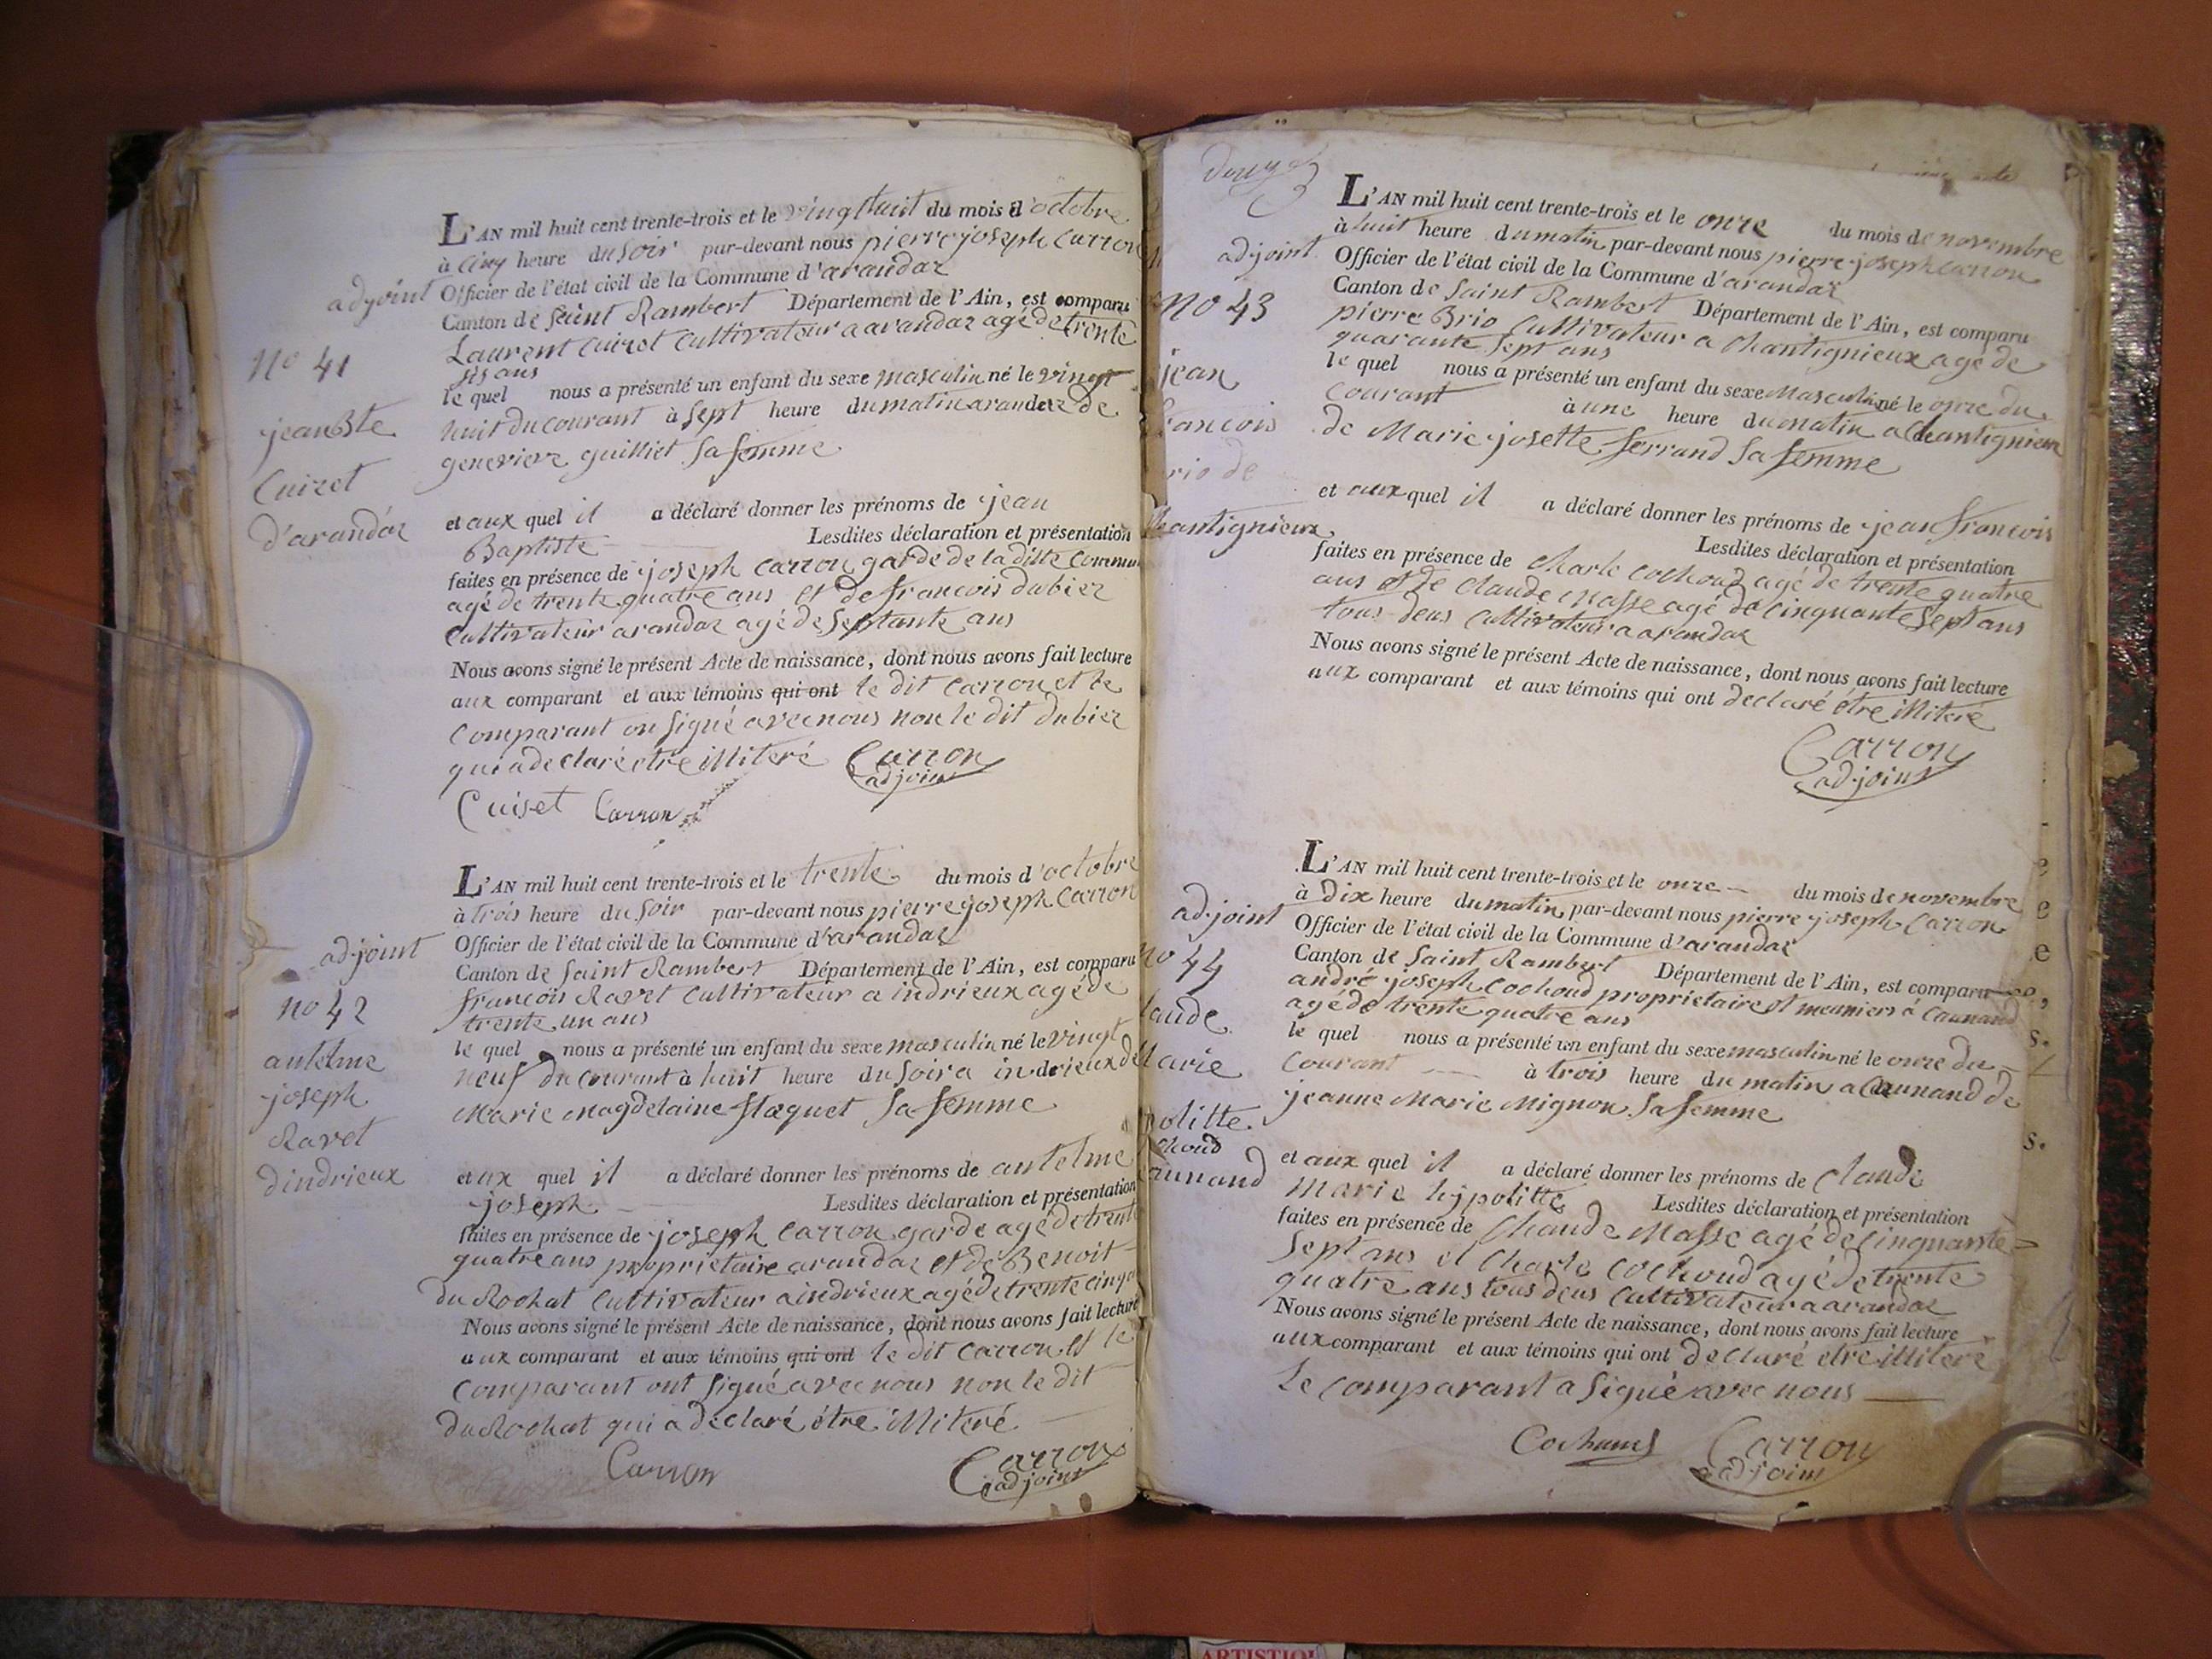 L'AN mil huit cent trente-trois et le vingt huit du mois d'octobre
à cinq heure du soir par-devant nous pierre joseph Carron
adjoint Officier de l'état civil de la Commune d'arandaz
Canton de saint Rambert Département de l'Ain, est comparu
Laurent Cuizet Cultivateur a arandaz agé de trente
sis ans
le quel nous a présenté un enfant du sexe masculin né le vingt
huit du courant à sept heure du matin arandaz de
genevieve guilliet sa femme
et aux quel il a déclaré donner les prénoms de jean
Baptiste Lesdites déclaration et présentation
faites en présence de joseph Carron garde de la ditte Commu
agé de trente quatre ans et de francois dubiez
Cultivateur arandaz agé de septante ans
Nous avons signé le présent Acte de naissance, dont nous avons fait lecture
aux comparant et aux témoins qui ont le dit Carron et le
Comparant on signé avec nous non le dit dubiez
qui a declaré étre illiteré Carron
adjoint
Cuiset Carron
no 41
jean Bte
Cuizet
d'arandaz
L'AN mil huit cent trente-trois et le trente du mois d'octobre
à trois heure du soir par-devant nous pierre joseph Carron
adjoint Officier de l'état civil de la Commune d'arandaz
Canton de saint Rambert Département de l'Ain, est comparu
francois Ravet Cultivateur a indrieux agé de
trente un ans
le quel nous a présenté un enfant du sexe masculin né le vingt
neuf du courant à huit heure du soir a indrieux de
Marie Magdelaine flaquet sa femme
et ax quel il a déclaré donner les prénoms de antelme
joseph Lesdites déclaration et présentation
faites en présence de joseph Carron garde agé de trente
quatre ans proprietaire arandaz et de Benoit
du Rochat Cultivateur a indrieux agé de trente cinq a
Nous avons signé le présent Acte de naissance, dont nous avons fait lecture
aux comparant et aux témoins qui ont le dit Carron et le
Comparant ont signé avec nous non le dit
du Rochat qui a declaré étre illiteré
Carron Carron
adjoint
no 42
antelme
joseph
Ravet
dindrieux
L'AN mil huit cent trente-trois et le onze du mois de novembre
à huit heure du matin par-devant nous pierre joseph Carron
adjoint Officier de l'état civil de la Commune d'arandaz
Canton de saint Rambert Département de l'Ain, est comparu
pierre Brio Cultivateur a Chantignieux agé de
quarante sept ans
le quel nous a présenté un enfant du sexe Masculin né le onze du
Courant à une heure du matin a Chantignieux
de Marie josette ferrand sa femme
et aux quel il a déclaré donner les prénoms de jean francois
Lesdites déclaration et présentation
faites en présence de Charle Cochoud agé de trente quatre
ans et de Claude Masse agé de Cinquante sept ans
tous deus Cultivateur a arandaz
Nous avons signé le présent Acte de naissance, dont nous avons fait lecture
aux comparant et aux témoins qui ont declaré étre illiteré
Carron
adjoint
no 43
jean
francois
rio de
hantignieux
L'AN mil huit cent trente-trois et le onze du mois de novembre
à Dix heure du matin par-devant nous pierre joseph Carron
adjoint Officier de l'état civil de la Commune d'arandaz
Canton de saint Rambert Département de l'Ain, est comparu
andré joseph Cochoud proprietaire et meuniers à Caunand
agé de trente quatre ans
le quel nous a présenté un enfant du sexe masculin né le onze du
Courant à trois heure du matin a Caunand de
jeanne Marie Mignon sa femme
et aux quel il a déclaré donner les prénoms de Claude
Marie hypolitte Lesdites déclaration et présentation
faites en présence de Chaude Masse agé de Cinquante
sept ans et Charle Cochoud agé de trente
quatre ans tous deus Cultivateur a arandaz
Nous avons signé le présent Acte de naissance, dont nous avons fait lecture
aux comparant et aux témoins qui ont declaré etre illiteré
Le comparant a signé avec nous
Carron
adjoint
no 44
laude
Marie
politte
choud
aunand
ARTISTIQU